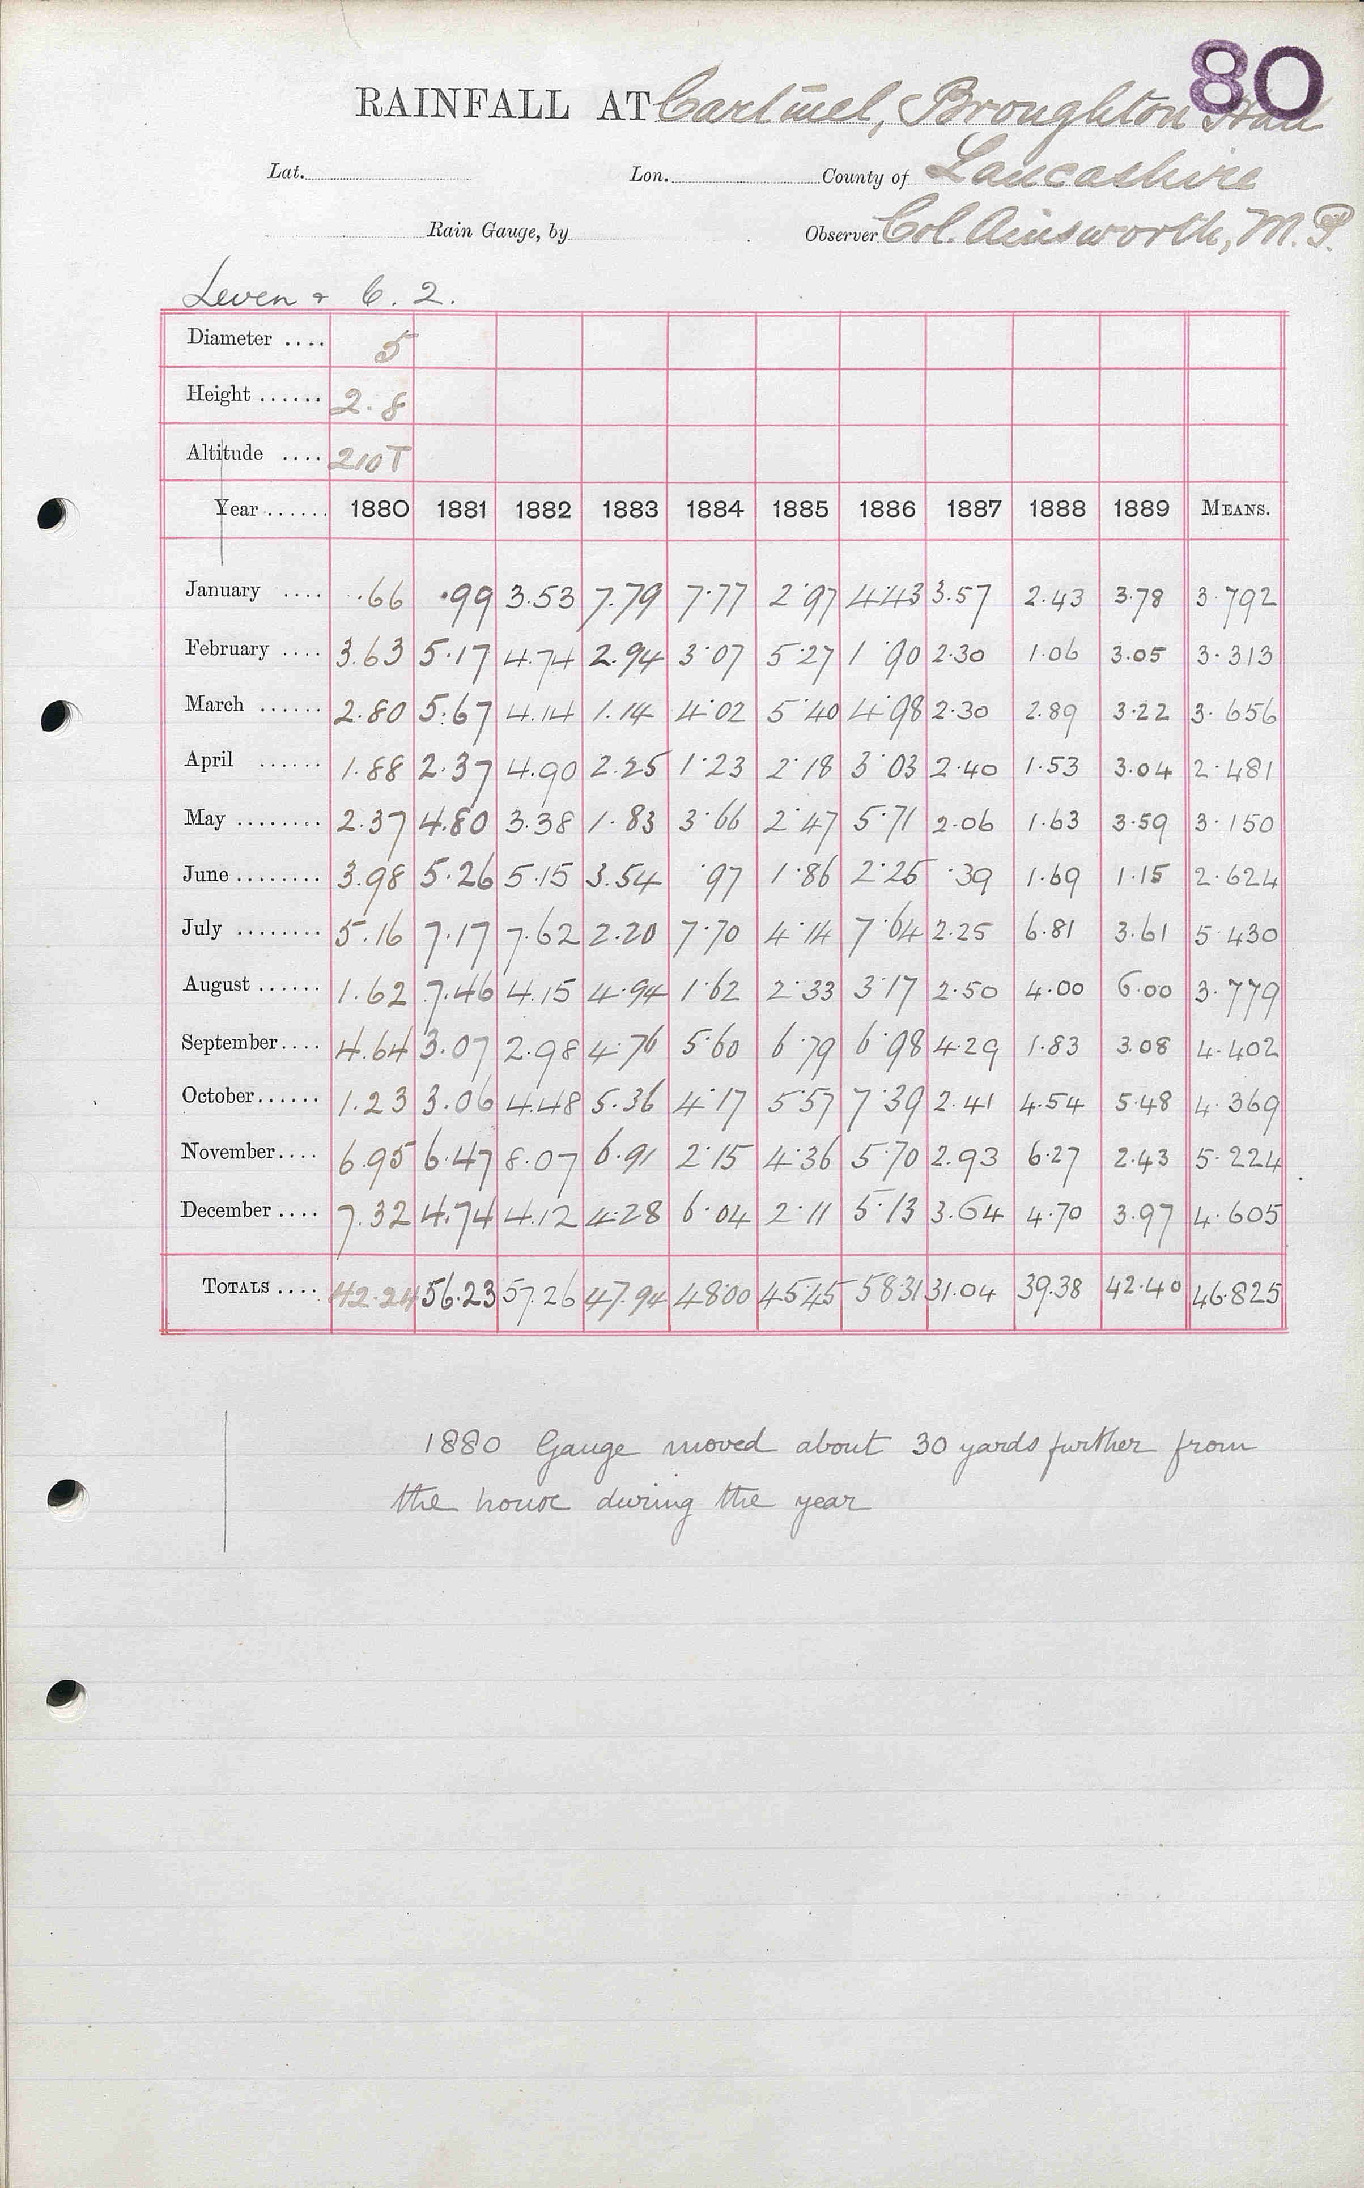 80
RAINFALL AT Cartmel, Broughton Hall
Lat. Lon. County of Lancashire
Rain Gauge, by Observer Col. Ainsworth, M.P.
Leven & C. 2.
Diameter .... 5
Height ...... 2.8
Altitude .... 210T
Year ...... 1880 1881 1882 1883 1884 1885 1886 1887 1888 1889 MEANS.
January .... .66 .99 3.53 7.79 7.77 2.97 4.43 3.57 2.43 3.78 3.792
February .... 3.63 5.17 4.74 2.94 3.07 5.27 1.90 2.30 1.06 3.05 3.313
March ...... 2.80 5.67 4.14 1.14 4.02 5.40 4.98 2.30 2.89 3.22 3.656
April ...... 1.88 2.37 4.90 2.25 1.23 2.18 3.03 2.40 1.53 3.04 2.481
May ........ 2.37 4.80 3.38 1.83 3.66 2.47 5.71 2.06 1.63 3.59 3.150
June ........ 3.98 5.26 5.15 3.54 .97 1.86 2.25 .39 1.69 1.15 2.624
July ........ 5.16 7.17 7.62 2.20 7.70 4.14 7.64 2.25 6.81 3.61 5.430
August ...... 1.62 7.46 4.15 4.94 1.62 2.33 3.17 2.50 4.00 6.00 3.779
September.... 4.64 3.07 2.98 4.76 5.60 6.79 6.98 4.29 1.83 3.08 4.402
October...... 1.23 3.06 4.48 5.36 4.17 5.57 7.39 2.41 4.54 5.48 4.369
November.... 6.95 6.47 8.07 6.91 2.15 4.36 5.70 2.93 6.27 2.43 5.224
December .... 7.32 4.74 4.12 4.28 6.04 2.11 5.13 3.64 4.70 3.97 4.605
TOTALS .... 42.24 56.23 57.26 47.94 48.00 45.45 58.31 31.04 39.38 42.40 46.825
1880 Gauge moved about 30 yards further from
the house during the year